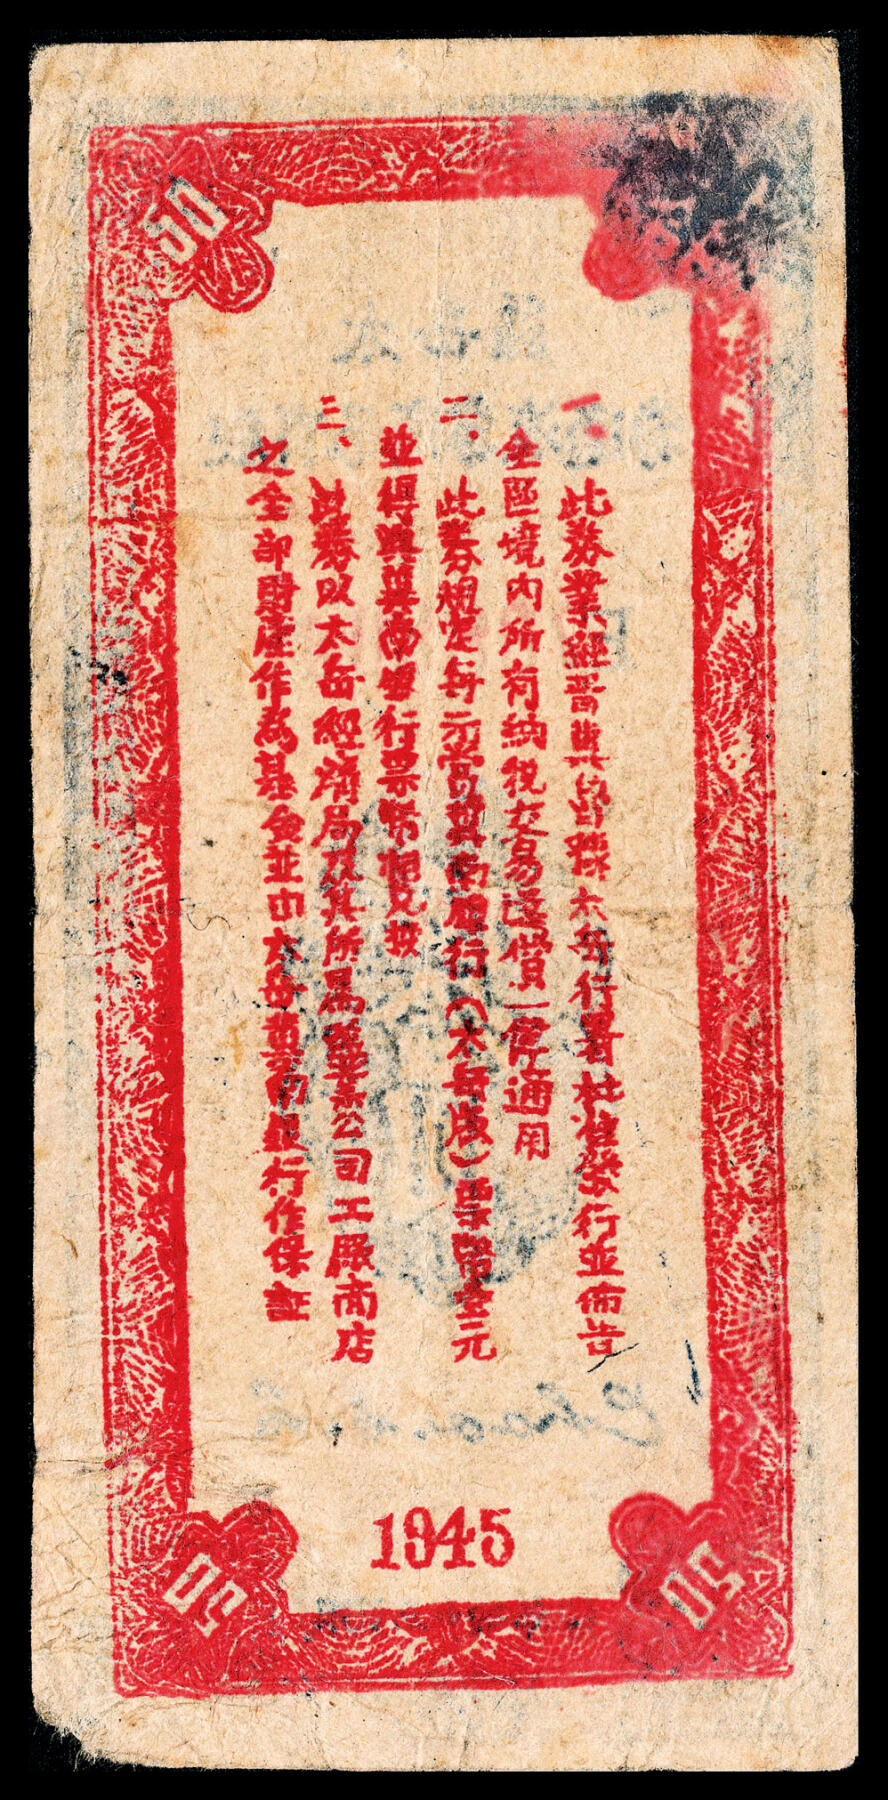 50
一、
此券業經晋冀魯豫太岳行署批准發行並佈告
全區境内所有納税交易还償一律通用
二、
此券規定每元當冀南銀行(太岳版)票幣壹元
並得與冀南銀行票幣相兑換
三、
此券以太岳經濟局及其所屬企業公司工厰商店
之全部財産作為基金並由太岳冀南銀行作保証
1945
50
50